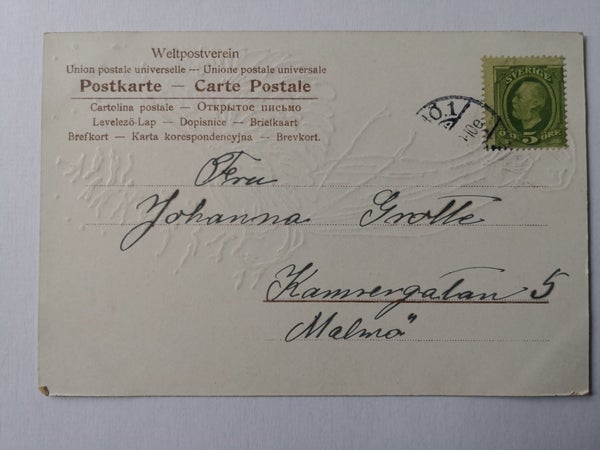 Weltpostverein
Union postale universelle — Unione postale universale
Postkarte — Carte Postale
Cartolina postale — Открытое письмо
Levelező-Lap — Dopisnice — Briefkaart
Brefkort — Karta korespondencyjna — Brevkort.
SVERIGE
5 ÖRE
Fru
Johanna Grotte
Kamrergatan 5
Malmö